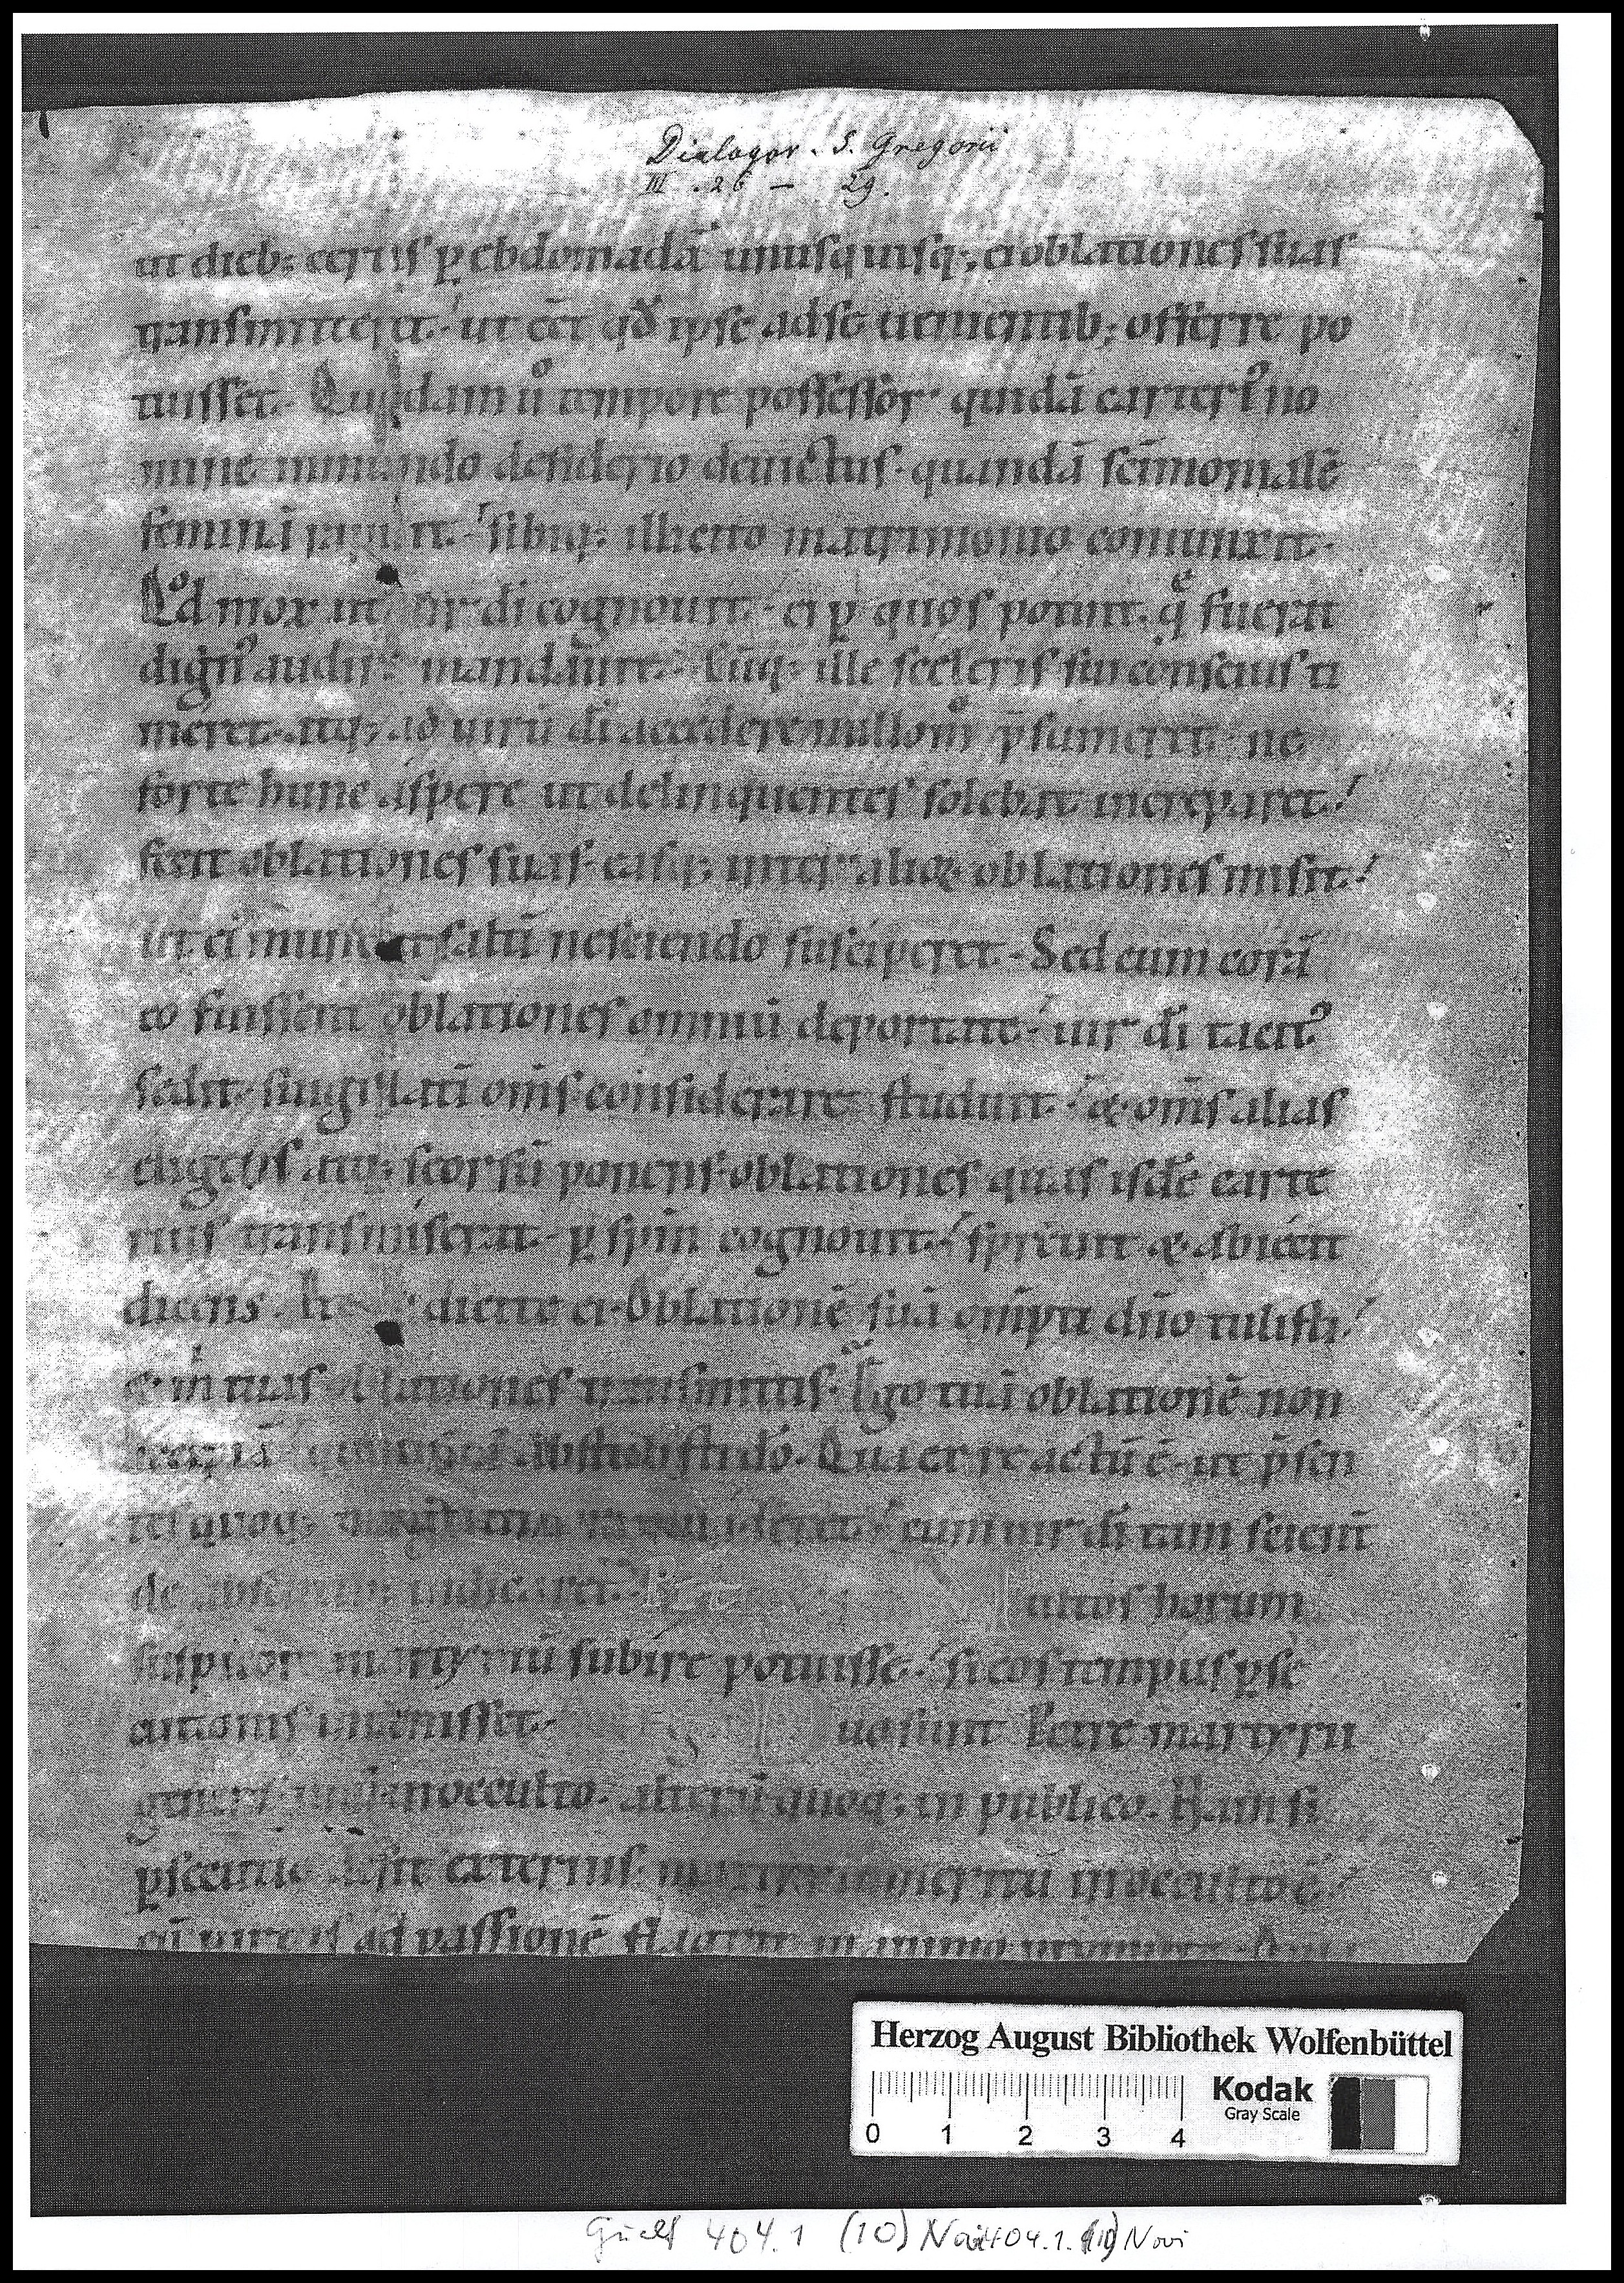 Dialogor. S. Gregorii
III. 26 — 29.
ut dieb; certis p̱ ebdomadā unusquisq; ei oblationes suas
transmitteret. ut eēt qđ ipse ad se uenientib; offerre po
tuisset. Quodam ů tempore possessor quidā carteriꝰ no
mine inmundo desiderio deuictus. quandā sc̄imonialē
feminā rapuit. sibiq; illicito matrimonio coniunxit.
Qd mox ut uir dī cognouit. ei p̱ quos potuit. q̄ fuerat
dignꝰ audire mandauit. Cūq; ille sceleris sui conscius ti
meret. atq; ad uirū dī accedere nullom̊ p̄sumeret. ne
forte hunc aspere ut delinquentes solebat increparet.
fecit oblationes suas. easq; inter alioꝝ oblationes misit.
ut ei munera saltū nesciendo susciperet. Sed cum corā
eo fuissent oblationes omniū deportate. uir dī tacitꝰ
sedit. singillatī om̄s considerare studuit. & om̄s alias
eligens atq; seorsū ponens. oblationes quas isdē carte
rius transmiserat. p̱ spm̄ cognouit. spreuit & abiecit
dicens. dicite ei. Oblationē suā om̄pti dn̄o tulisti.
& m tuas oblationes transmittis. Ego tuā oblationē non
Qua ex re actū ē. ut p̄sen
tes quoq; cum uir dī tam scient̄
de absentib; iudicaret. altos horum
suspicor martyriū subire potuisse. si eos tempus p̱se
cutionis inuenisset. uo sunt Petre martyrii
genera. unū in occulto. alterū quoq; in publico. Nam si
p̱secutio desit exterius. martyrii meritū in occulto ē.
cū uirtus ad passionē
Herzog August Bibliothek Wolfenbüttel
Kodak
Gray Scale
0 1 2 3 4
Guelf 404.1 (10) Novi 404.1. (10) Novi